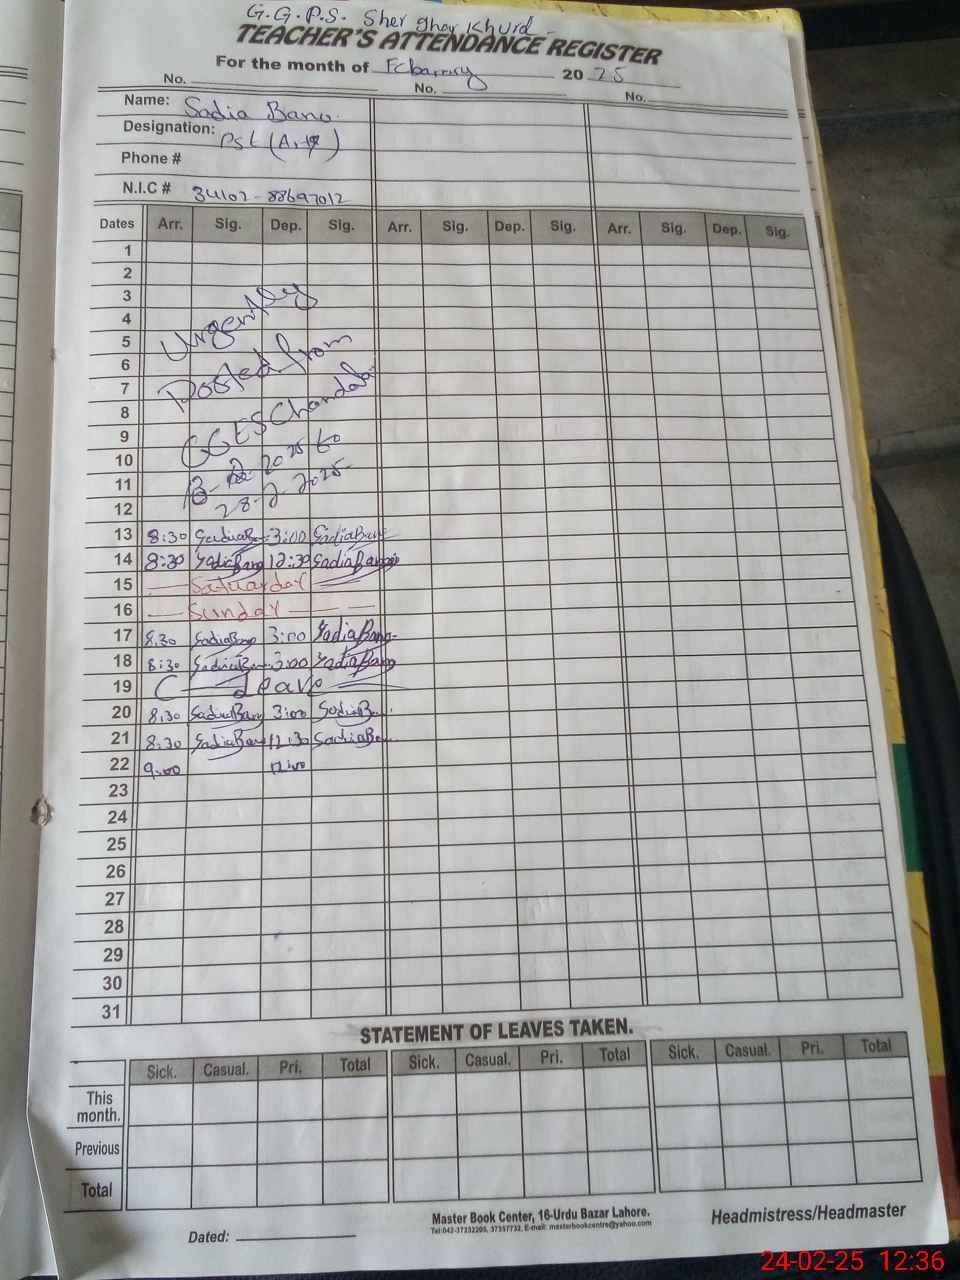 G.G.P.S. Sher Ghar Khurd
TEACHER'S ATTENDANCE REGISTER
For the month of Febarury 2025
No. No. No.
Name: Sadia Bano.
Designation: Pst
Phone #
N.I.C # 34102-88697012
Dates Arr. Sig. Dep. Sig. Arr. Sig. Dep. Sig. Arr. Sig. Dep. Sig.
1
2
3
4
5
6
7
8
9
10
11
12
Urgently
Posted from
GGES Chandala
13-2-2025 to
28-2-2025
13 8:30 SadiaBano 3:00 SadiaBano
14 8:30 SadiaBano 12:30 SadiaBano
15 Satuarday
16 Sunday
17 8:30 SadiaBano 3:00 SadiaBano
18 8:30 SadiaBano 3:00 SadiaBano
19 C Leave
20 8:30 SadiaBano 3:00 SadiaBano
21 8:30 SadiaBano 12:30 SadiaBano
22 9:00 12:00
23
24
25
26
27
28
29
30
31
STATEMENT OF LEAVES TAKEN.
Sick. Casual. Pri. Total Sick. Casual. Pri. Total Sick. Casual. Pri. Total
This month.
Previous
Total
Dated:
Master Book Center, 16-Urdu Bazar Lahore.
Tel:042-37232205, 37357732, E-mail: masterbookcentre@yahoo.com
Headmistress/Headmaster
24-02-25 12:36